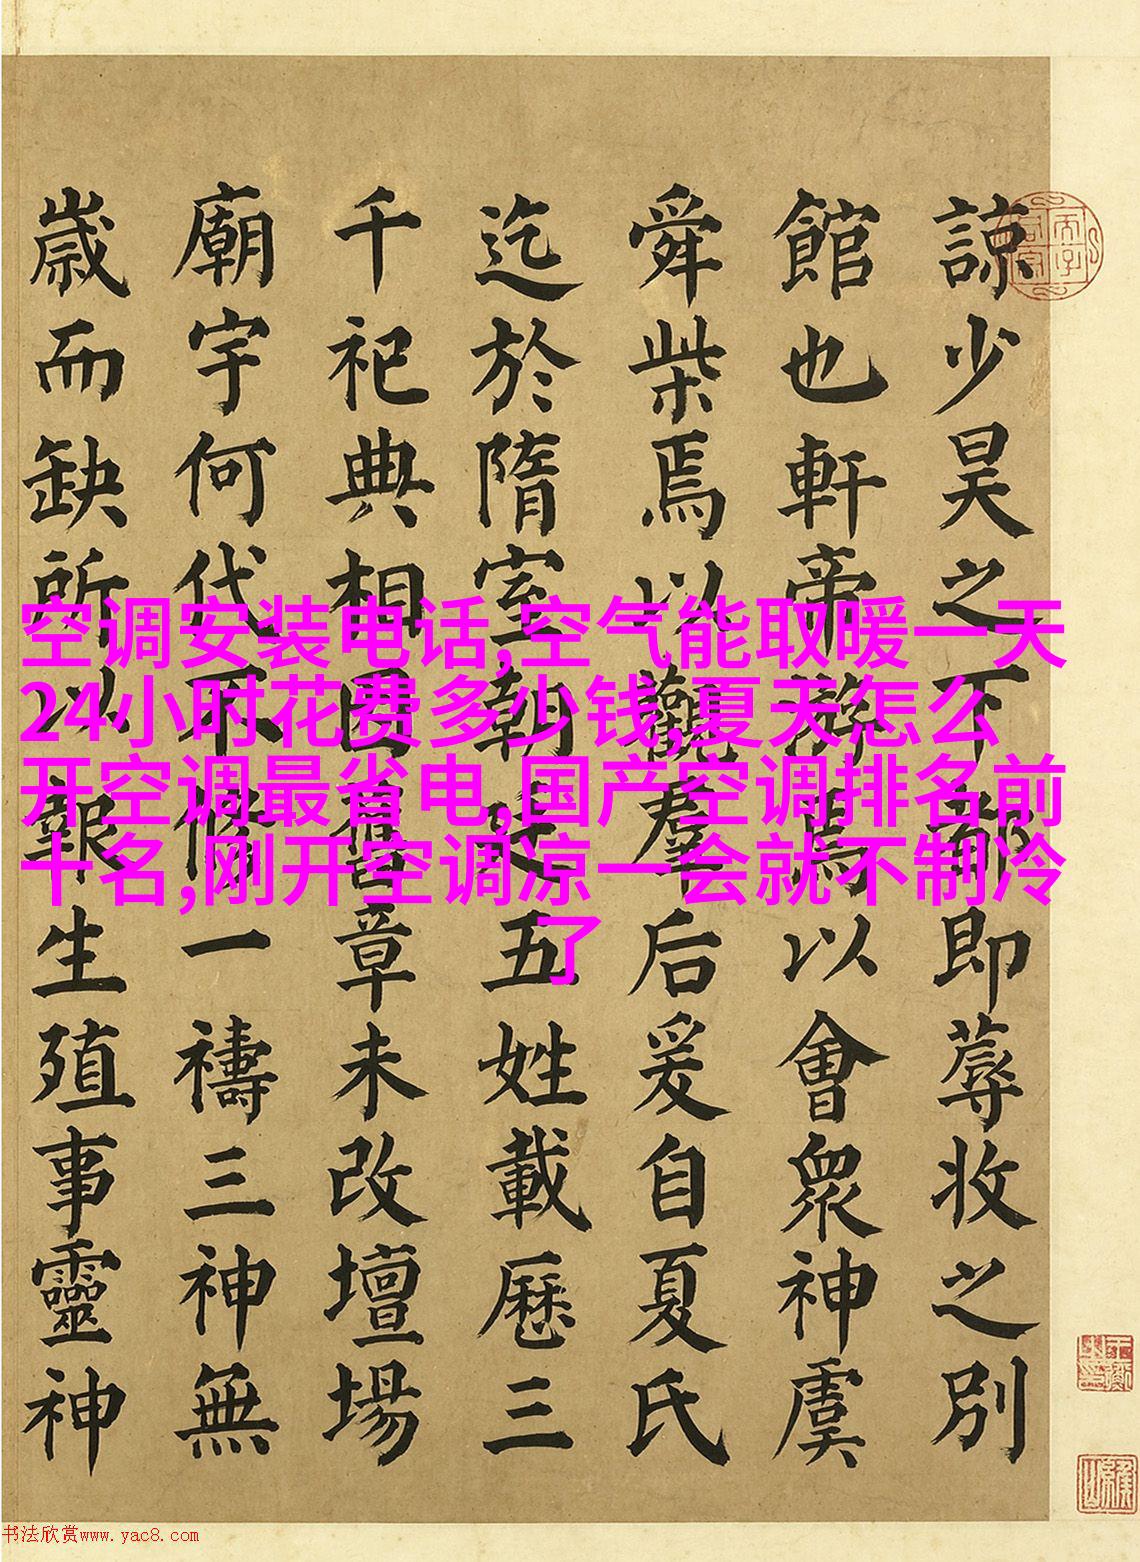 諒少昊之下都即蓐收之別
館也軒帝遊焉以會眾神虞
舜柴焉以觀羣后爰自夏氏
迄於隋室朝五姓載歷三
千祀典相因舊章未改壇場
廟宇何代不脩一禱三神無
歲而缺所以報生殖事靈神
空调安装电话,空气能取暖一天
24小时花费多少钱,夏天怎么
开空调最省电,国产空调排名前
十名,刚开空调凉一会就不制冷
了
书法欣赏www.yac8.com